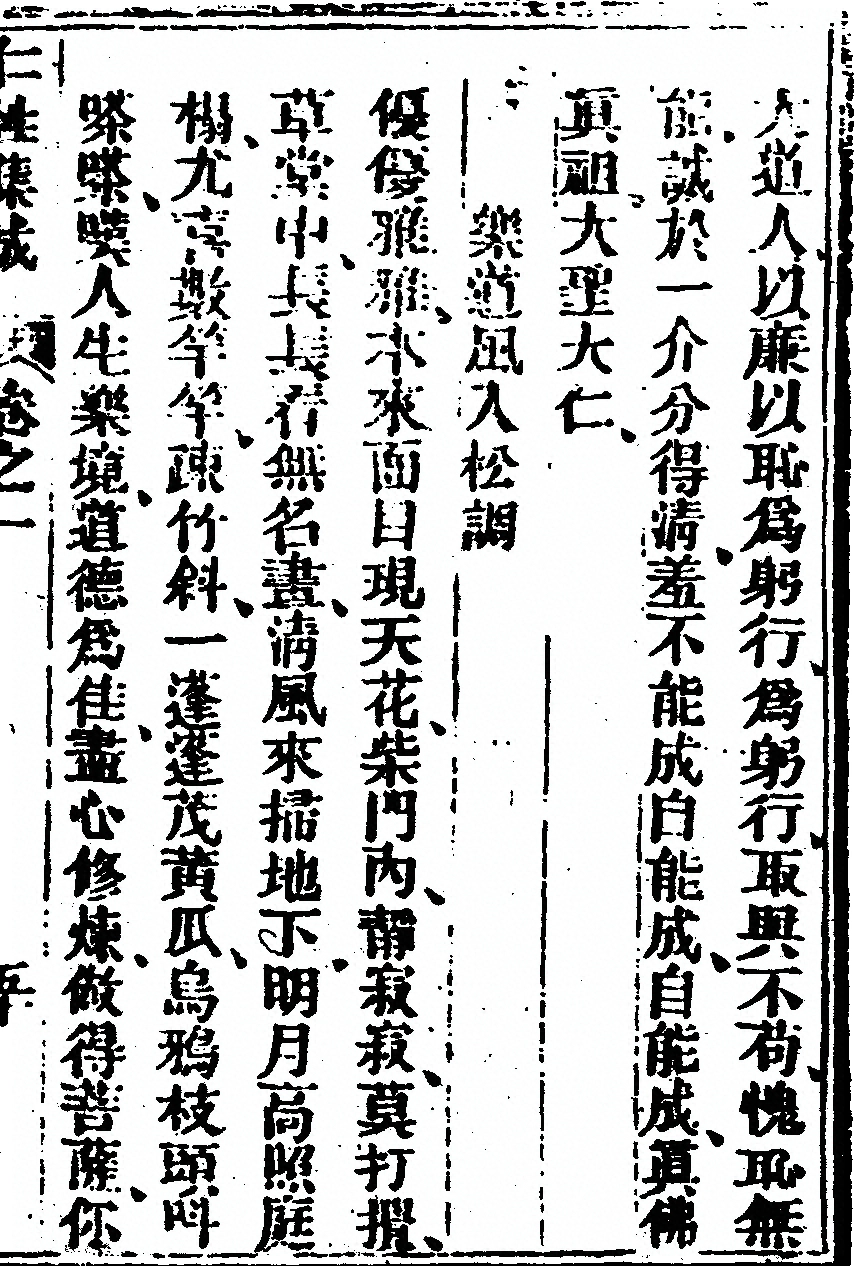 人道人以廉以恥為躬行為躬行取與不苟愧恥無
能誠於一介分得清羞不能成白能成自能成眞佛
眞祖大聖大仁
樂道風入松調
優優雅雅本來面目現天花柴門內靜寂寂莫打攪
草堂中長長存無名晝清風來掃地下明月高照庭
榻尤高數竿竿疎竹斜一蓬蓬茂黃瓜烏鴉枝頭叫
喳喳嘆人生樂境道德為佳盡心修煉做得菩薩你
卷之一